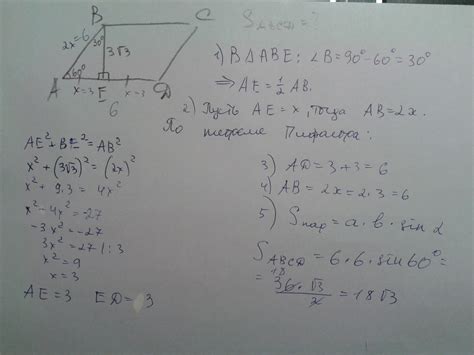 B
C
A
E
D
2x=6
30°
3√3
60°
x=3
x=3
6
S ABCD = ?
1) В △ ABE: ∠B = 90° - 60° = 30°
⇒ AE = 1/2 AB.
2) Пусть AE = x, тогда AB = 2x.
По теореме Пифагора:
AE² + BE² = AB²
x² + (3√3)² = (2x)²
x² + 9·3 = 4x²
x² - 4x² = -27
-3x² = -27
3x² = 27 |:3
x² = 9
x = 3
AE = 3 ED = 3
3) AD = 3 + 3 = 6
4) AB = 2x = 2·3 = 6
5) Sпар = a·b·sin α
S ABCD = 6·6·sin60° =
= 18 36·√3 / 2 = 18√3